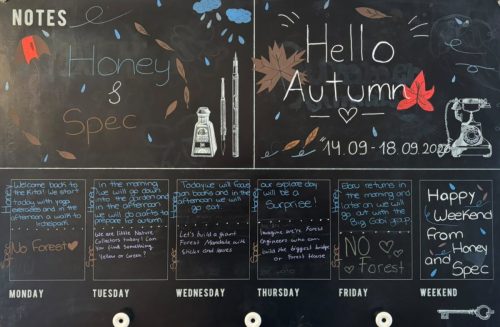 NOTES
Honey
&
Spec
Hello
Autumn
14.09 - 18.09.
Honey
Welcome back to
the Kita! We start
today with yoga
exercises and in the
afternoon a walk to
Spec
No Forest
Honey
In the morning
we will go down
into the garden and
in the afternoon
we will do crafts to
prepare for autumn.
Spec
We are little Nature
Collectors today! Can
you find something
Yellow or Green?
Honey
Today we will focus
on books and in the
afternoon we will
go eat.
Spec
Let's build a giant
Forest Mandala with
Sticks and leaves
Honey
our explore day
will be a
Surprise!
Spec
Imagine we're Forest
Engineers who can
the Biggest bridge
or Forest House
Honey
returns in
the morning and
later on we will
go art with the
Big Kids group.
Spec
NO
Forest
Happy
Weekend
from
Honey
and
Spec
MONDAY
TUESDAY
WEDNESDAY
THURSDAY
FRIDAY
WEEKEND